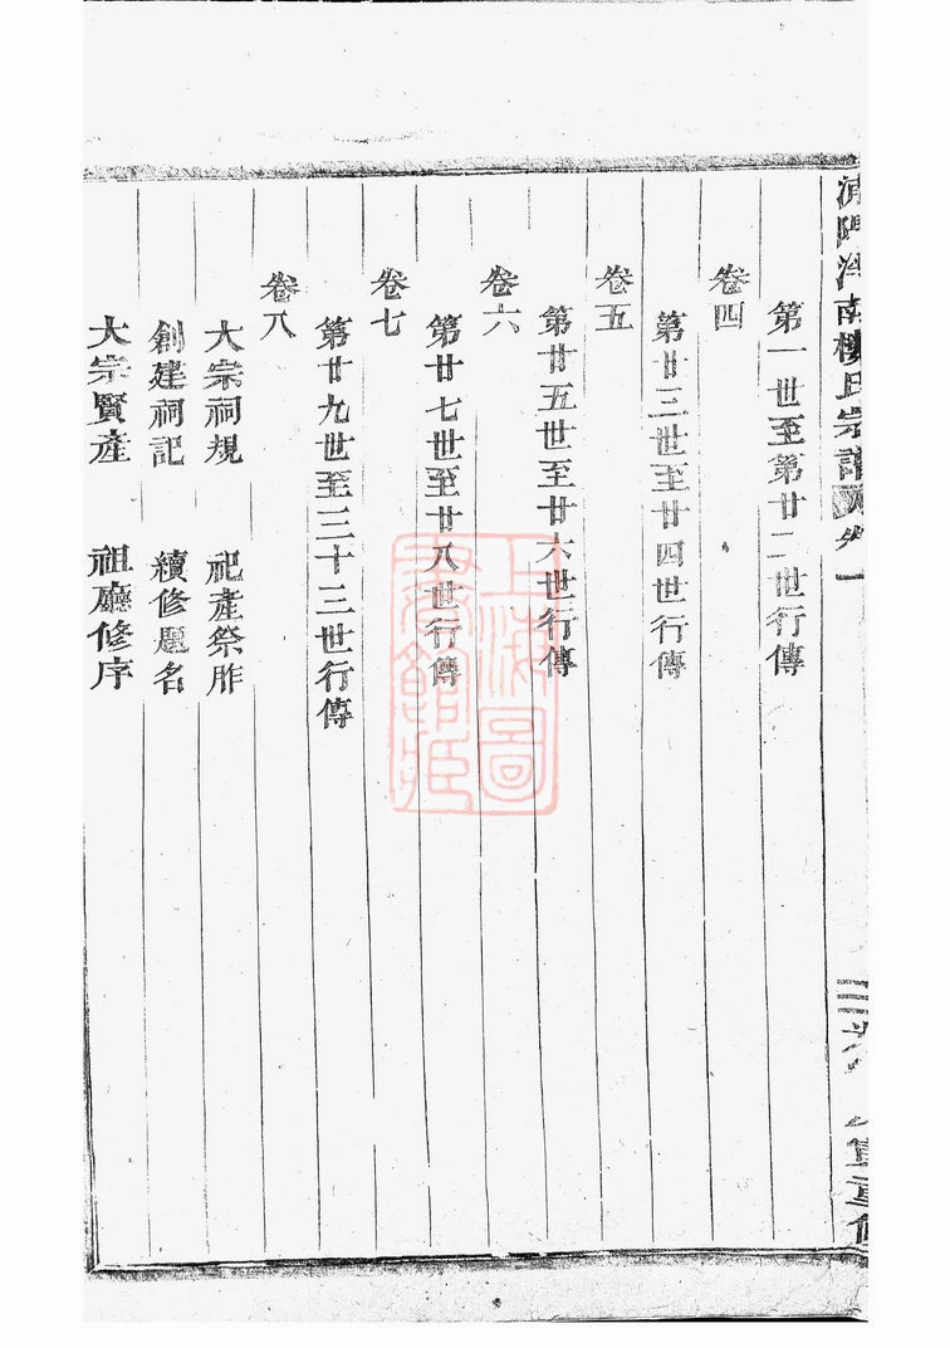 南樓氏宗譜
卷一
第一世至第廿二世行傳
卷四
第廿三世至廿四世行傳
卷五
第廿五世至廿六世行傳
卷六
第廿七世至廿八世行傳
卷七
第廿九世至三十三世行傳
卷八
大宗祠規　祀產祭胙
創建祠記　續修題名
大宗賢產　祖廳修序
上海圖
書館藏